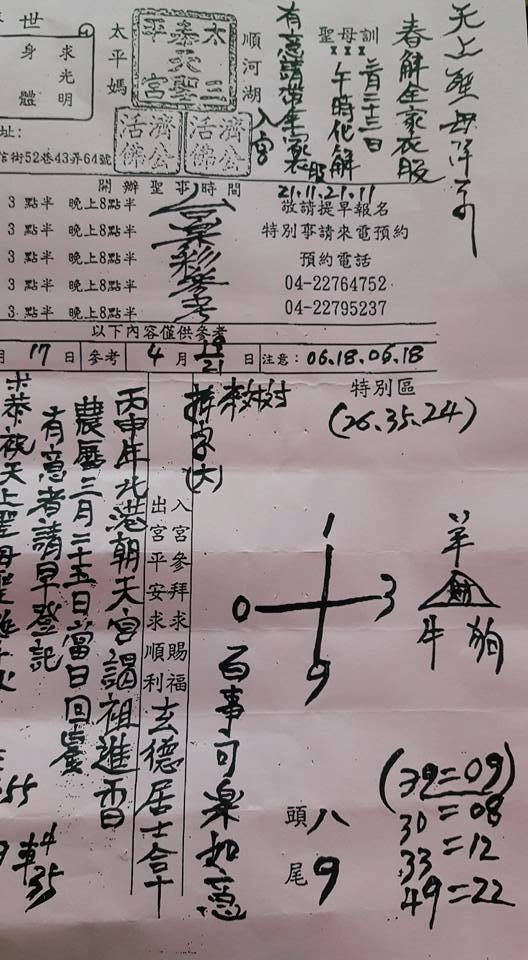 天上聖母降示
春解全家衣服
聖母訓
xxx
三月二十三日
午時化解
有意請帶全家衣服
入宮
21.11.21.11
順河湖
太平
泰天聖
三宮
濟公活佛
濟公活佛
太平媽
世
求光明
身體
址:
信街52巷43弄64號
開辦聖事時間
3點半 晚上8點半
3點半 晚上8點半
3點半 晚上8點半
3點半 晚上8點半
六合彩參考
敬請提早報名
特別事請來電預約
預約電話
04-22764752
04-22795237
以下內容僅供參考
月 17 日 參考 4 月 19 21 日 注意: 06.18.06.18
特別區
(26.35.24)
拆字(大)
入宮參拜求賜福
出宮平安求順利
玄德居士合十
丙申年北港朝天宮謁祖進香
農歷三月二十五日當日回鑾
有意者請早登記
恭祝天上聖母聖誕千秋
百事可樂如意
1
0 3
9
羊
財
牛 狗
頭 八
尾 9
(39=09)
30=08
33=12
49=22
55
車
4
35